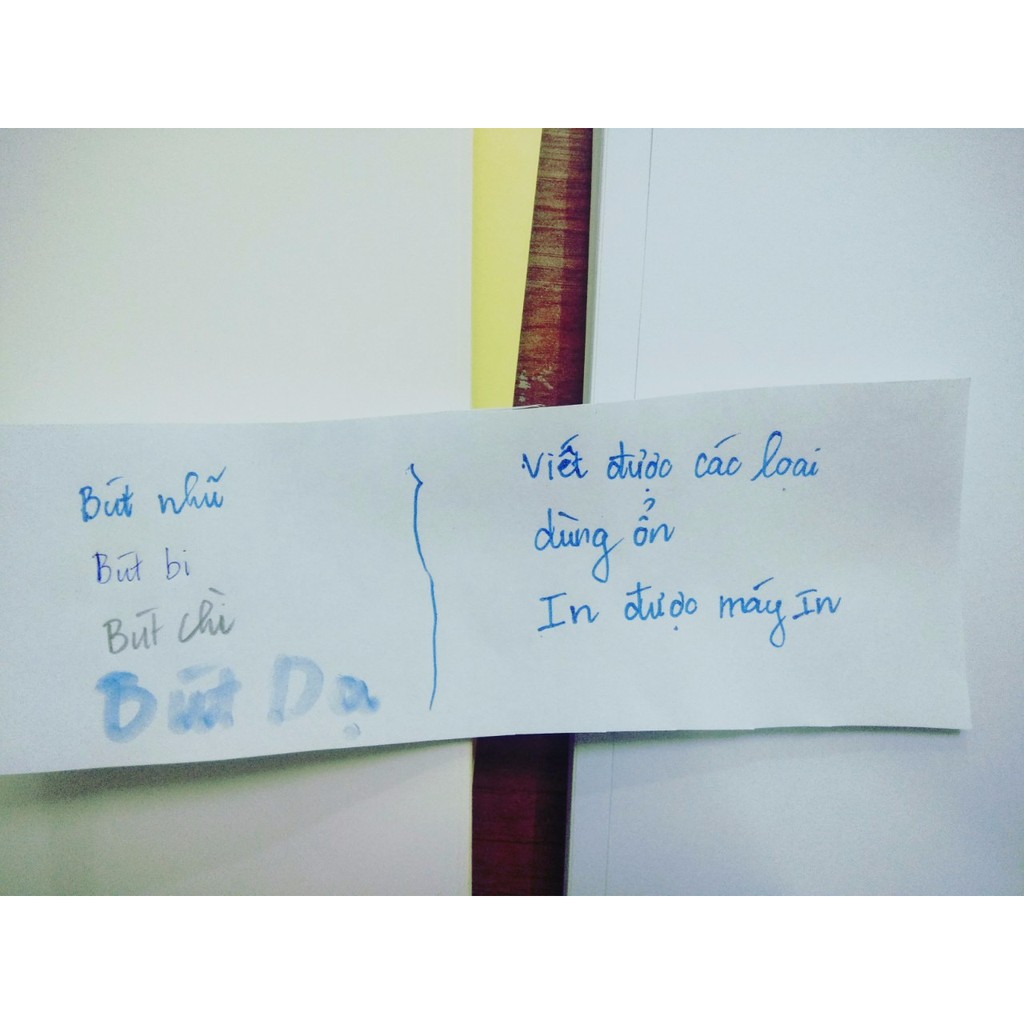 Bút nhũ
Bút bi
Bút chì
Bút Dạ
Viết được các loại
dùng ổn
In được máy In